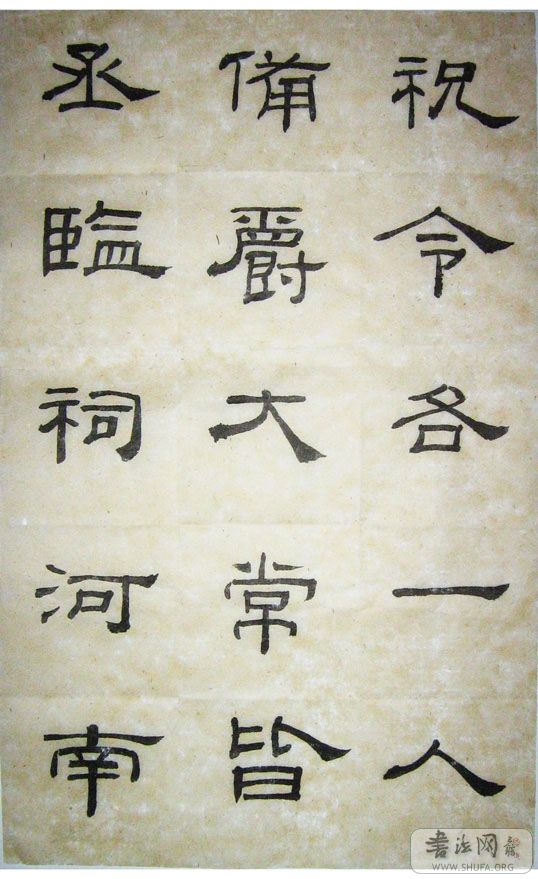 祝令各一人
備爵大常皆
丞臨祠河南
書法网
WWW.SHUFA.ORG